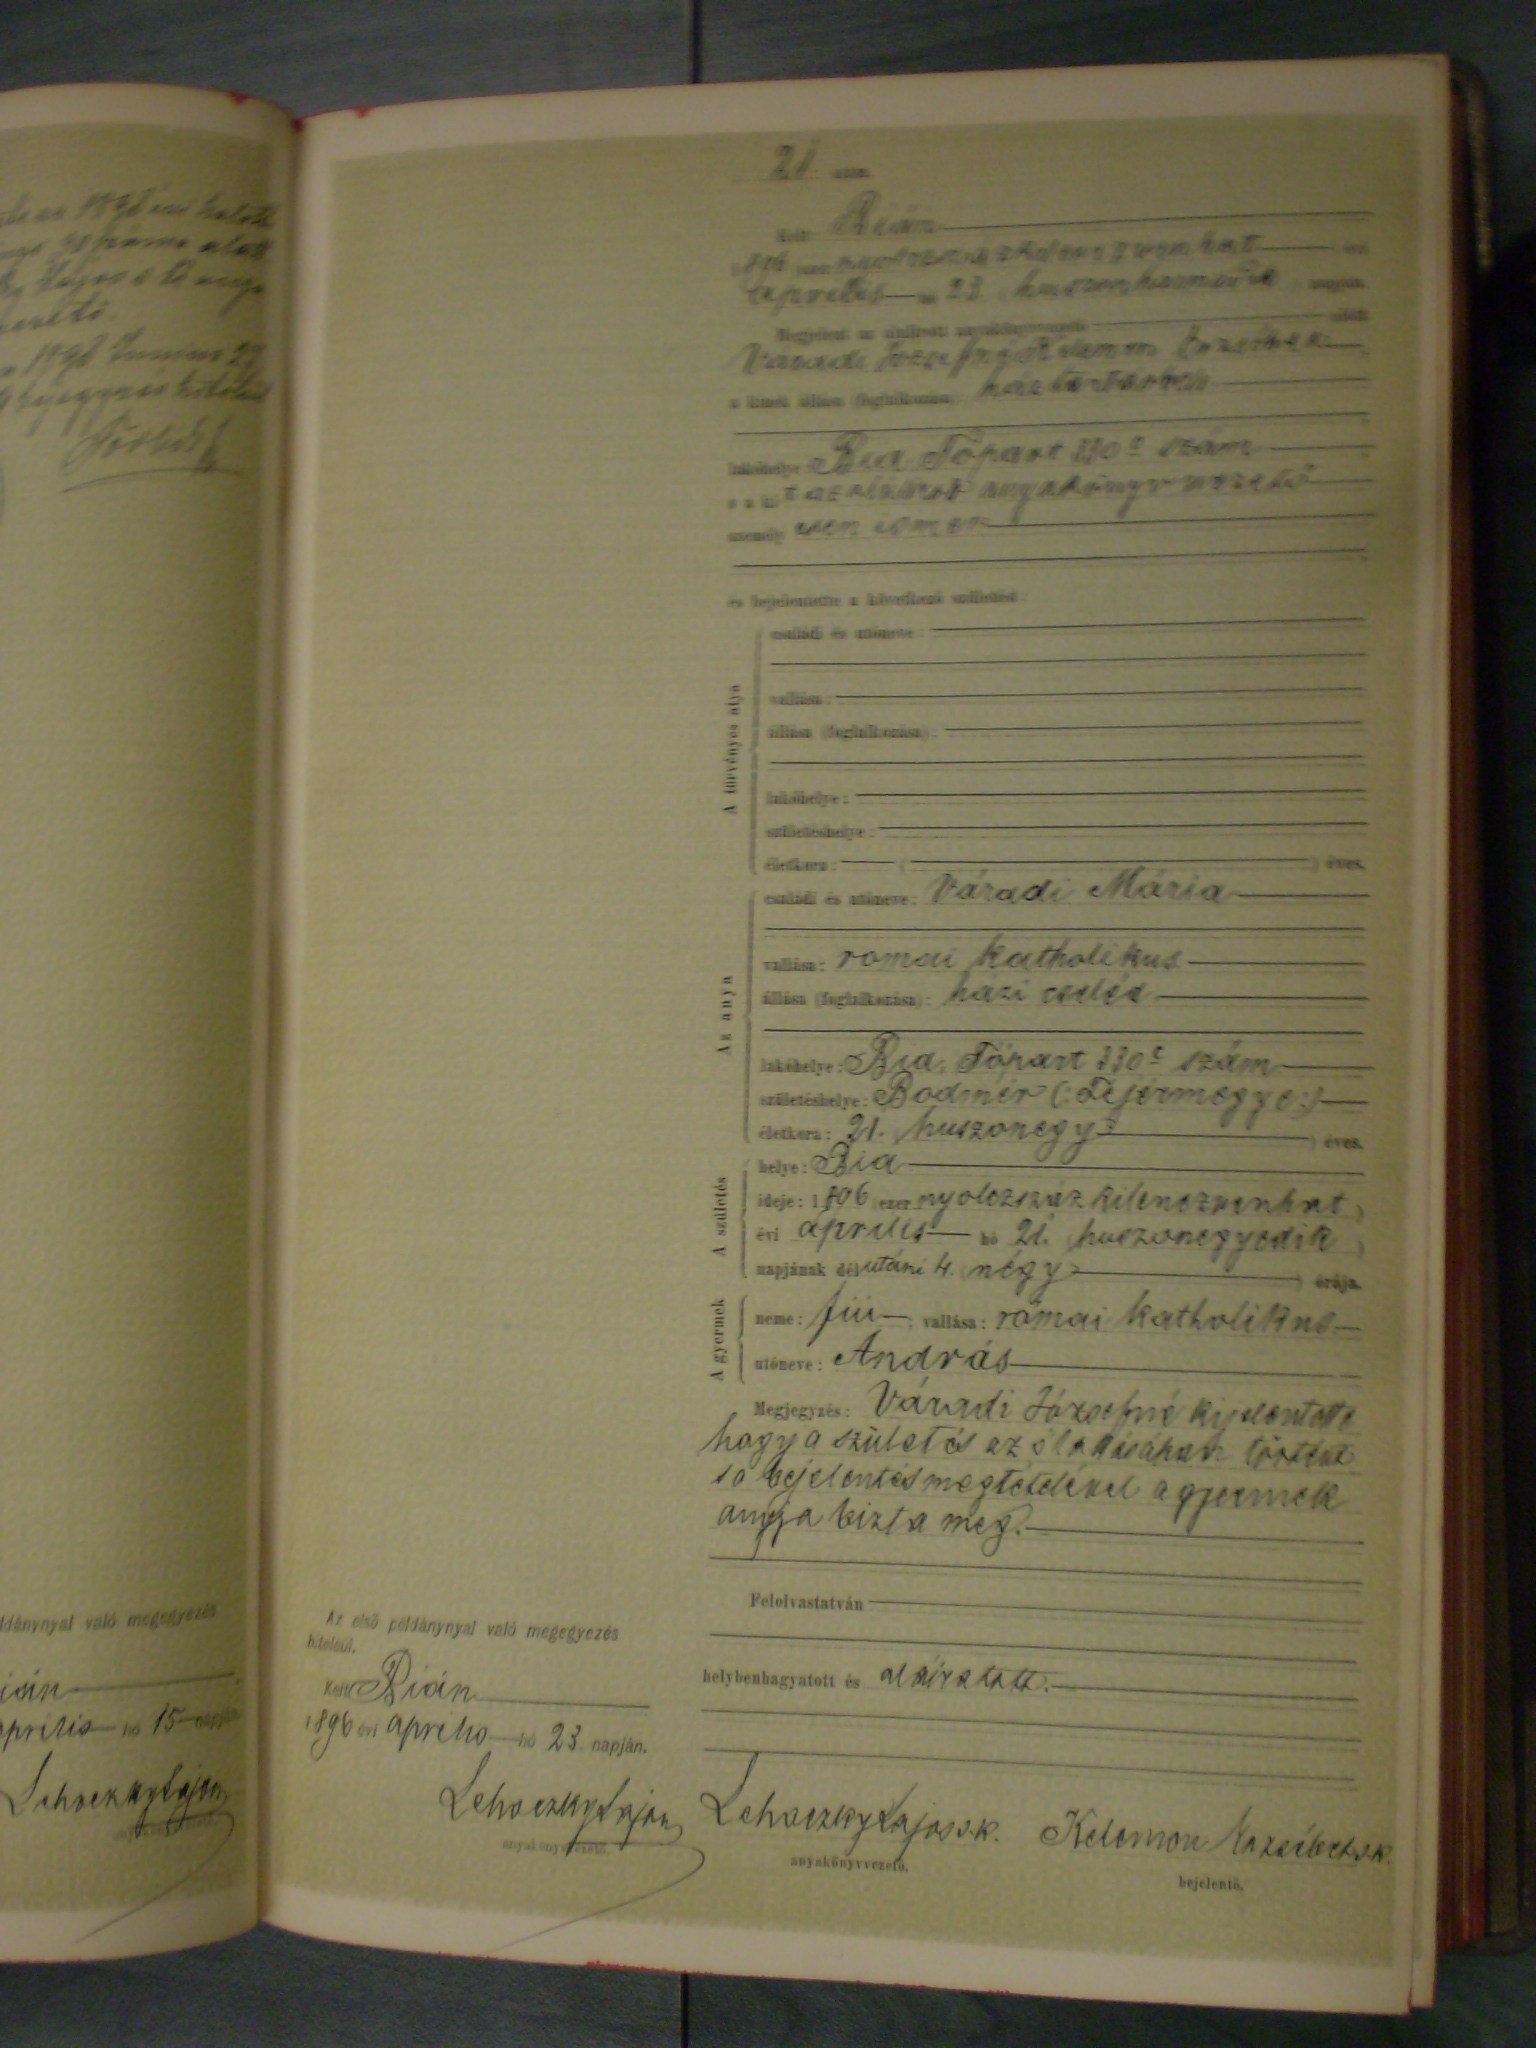 1898 Junius 22
21 szám.
Kelt Bián
1896 ezer nyolczszázkilenczvenhat évi
április hó 23 huszonharmadik napján.
Megjelent az alulirott anyakönyvvezető előtt
Váradi Józsefné Kelemen Erzsébet
a kinek állása (foglalkozása) háztartásbeli
lakóhelye Bia Tópart 330 szám
a kit az alulirott anyakönyvvezető
személyesen ismer
és bejelentette a következő születést:
A törvényes atya
családi és utóneve:
vallása:
állása (foglalkozása):
lakóhelye:
születéshelye:
életkora: ( ) éves.
Az anya
családi és utóneve: Váradi Mária
vallása: romai katholikus
állása (foglalkozása): házi cseléd
lakóhelye: Bia, Tópart 330 szám
születéshelye: Bodmér (: Fejérmegye :)
életkora: 21. huszonegy éves.
A születés
helye: Bia
ideje: 1896 ezer nyolczszáz kilenczvenhat
évi április hó 21. huszonegyedik
napjának délutáni 4. négy órája.
A gyermek
neme: fiú ; vallása: római katholikus
utóneve: András
Megjegyzés: Váradi Józsefné kijelentette
hogy a születés az ő lakásában történt
s a bejelentés megtételével a gyermek
anyja bizta meg.
Felolvastatván
helybenhagyatott és aláiratott.
Az első példánynyal való megegyezés
hiteléül.
Kelt Bián
1896 évi április hó 23. napján.
Lehoczky Lajos
anyakönyvvezető.
Lehoczky Lajos s.k.
anyakönyvvezető.
Kelemen Erzsébet s.k.
bejelentő.
példánynyal való megegyezés
Bián
április hó 15 napján
Lehoczky Lajos